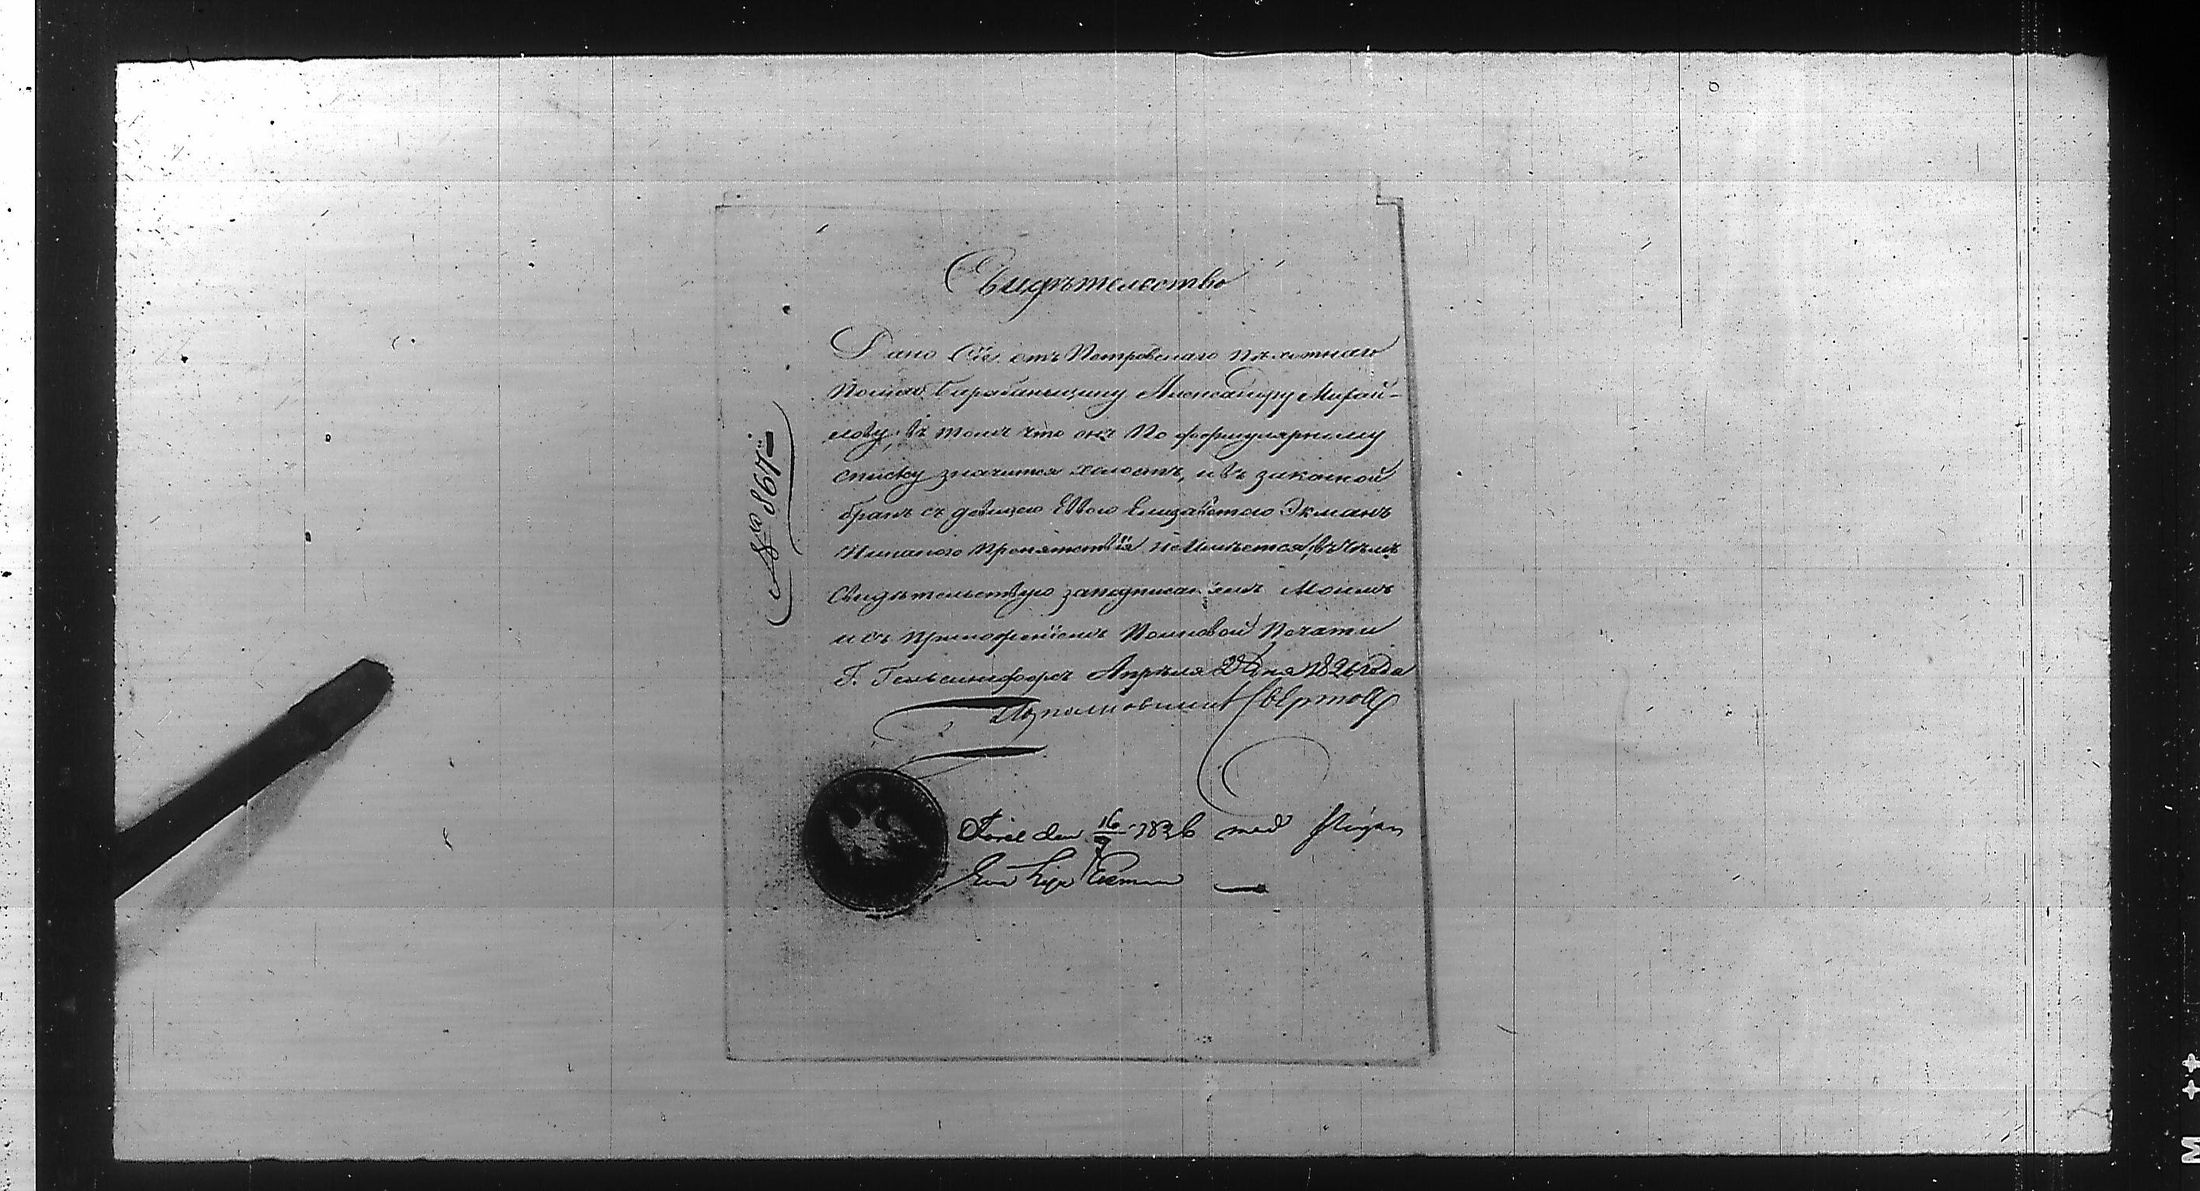 Свидѣтельство
Дано Сіе отъ Петровскаго пѣхотнаго
Полка Барабанщику Александру Михай-
лову, въ томъ что онъ По формулярному
списку значится холостъ, и въ законной
бракъ съ дѣвицею Еввою Елизаветою Экманъ
Никакого Препятствія неимѣется, въ чемъ
Свидѣтельствую заподписаніемъ Моимъ
и съ приложеніемъ Полковой Печати
Г. Гельсингфорсъ Апрѣля дня года
Подполковникъ
№ 867
den 16/7 1826 med Pigan
Eva Lisa Ekman